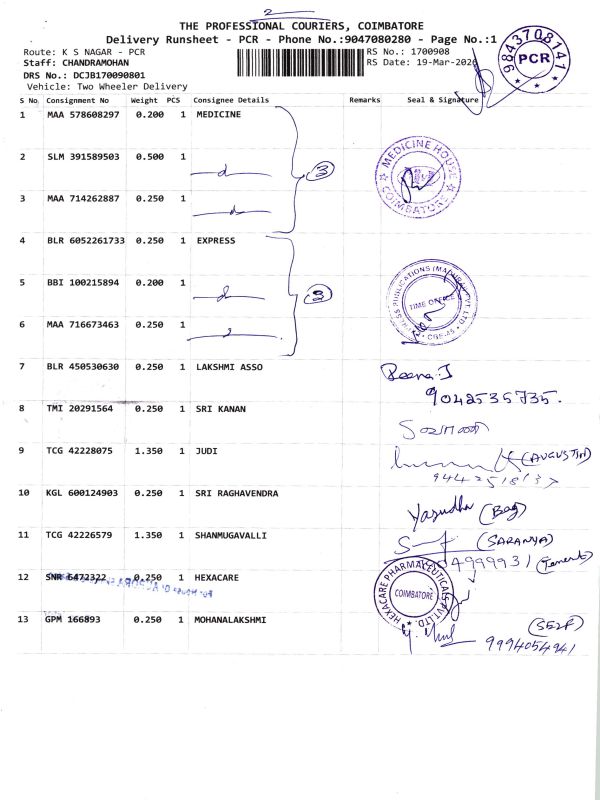 2
THE PROFESSIONAL COURIERS, COIMBATORE
Delivery Runsheet - PCR - Phone No.:9047080280 - Page No.:1
Route: K S NAGAR - PCR
RS No.: 1700908
Staff: CHANDRAMOHAN
RS Date: 19-Mar-2026
DRS No.: DCJB170090801
Vehicle: Two Wheeler Delivery
9843708141
PCR
S No Consignment No Weight PCS Consignee Details Remarks Seal & Signature
1 MAA 578608297 0.200 1 MEDICINE
2 SLM 391589503 0.500 1
3
MEDICINE HOUSE
COIMBATORE
3 MAA 714262887 0.250 1
4 BLR 6052261733 0.250 1 EXPRESS
5 BBI 100215894 0.200 1
3
TIME OFFICE
6 MAA 716673463 0.250 1
7 BLR 450530630 0.250 1 LAKSHMI ASSO
Reena.J
9042535735.
8 TMI 20291564 0.250 1 SRI KANAN
9 TCG 42228075 1.350 1 JUDI
(AUGUSTIN)
10 KGL 600124903 0.250 1 SRI RAGHAVENDRA
(Bag)
11 TCG 42226579 1.350 1 SHANMUGAVALLI
(SARANYA)
12 SNR 6472322 0.250 1 HEXACARE
HEXACARE PHARMACEUTICALS PVT. LTD.
COIMBATORE
13 GPM 166893 0.250 1 MOHANALAKSHMI
(SELF)
9994054941